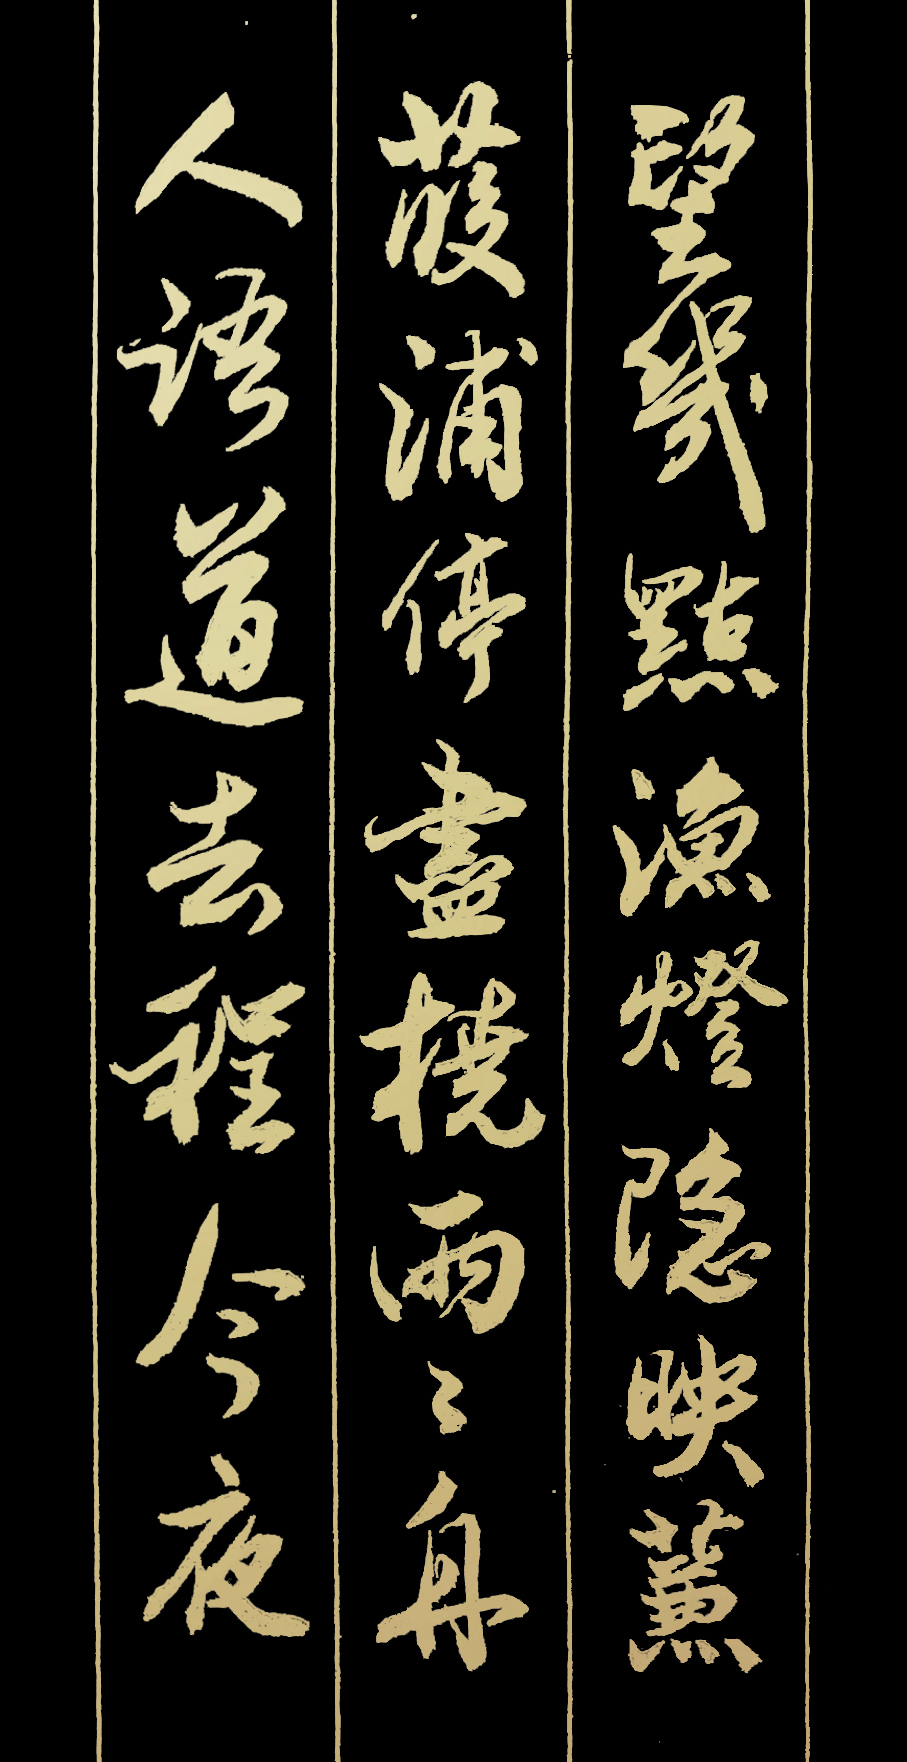 望幾點漁燈隐映蒹
葭浦停盡橈兩〻舟
人語道去程今夜